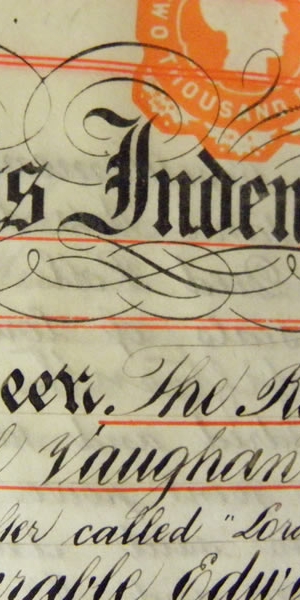 WO THOUSAND
s Inden
een. The R
Vaughan
ter called "Lord
rable Edw